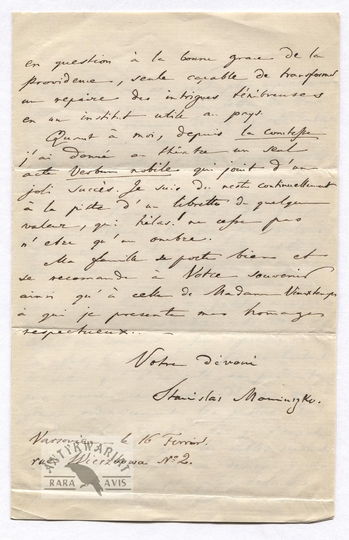 en question à la bonne grace de la
Providence, seule capable de transformer
un repaire des intrigues ténébreuses
en un institut utile au pays.
Quant à moi, depuis la Comtesse
j'ai donné au théatre un seul
acte Verbum nobile qui jouit d'un
joli succès. Je suis du reste continuellement
à la piste d'un libretto de quelque
valeur, qui hélas! ne cesse pas
n'etre qu'un ombre.
Ma famille se porte bien et
se recomande à Votre souvenir
ainsi qu'à celle de Madam
à qui je presente mes homages
respectueux..
Votre dévoué
Stanislas Moniuszko.
Varsovie le 16 Fevrier.
rue Wierzbowa No 2.
ANTYKWARIAT
RARA AVIS